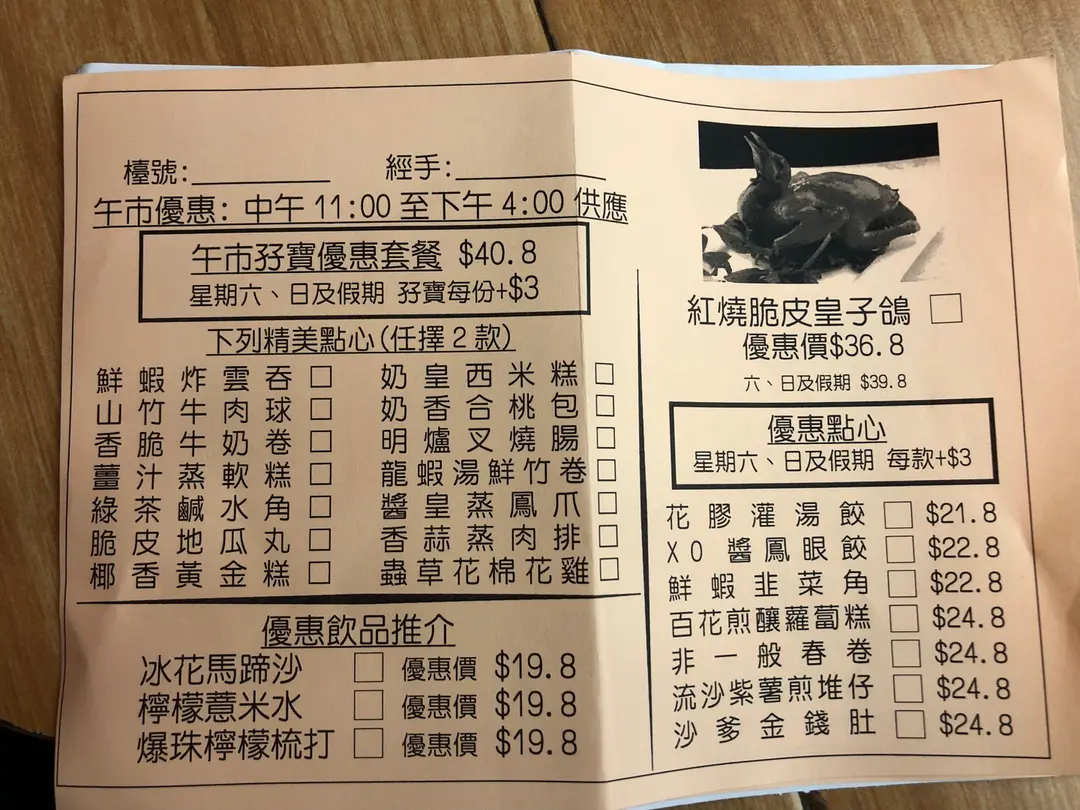 檯號:
經手:
午市優惠: 中午 11:00 至下午 4:00 供應
午市孖寶優惠套餐 $40.8
星期六、日及假期 孖寶每份+$3
下列精美點心(任擇 2 款)
鮮蝦炸雲吞 □
山竹牛肉球 □
香脆牛奶卷 □
薑汁蒸軟糕 □
綠茶鹹水角 □
脆皮地瓜丸 □
椰香黃金糕 □
奶皇西米糕 □
奶香合桃包 □
明爐叉燒腸 □
龍蝦湯鮮竹卷 □
醬皇蒸鳳爪 □
香蒜蒸肉排 □
蟲草花棉花雞 □
優惠飲品推介
冰花馬蹄沙 □ 優惠價 $19.8
檸檬薏米水 □ 優惠價 $19.8
爆珠檸檬梳打 □ 優惠價 $19.8
紅燒脆皮皇子鴿 □
優惠價$36.8
六、日及假期 $39.8
優惠點心
星期六、日及假期 每款+$3
花膠灌湯餃 □ $21.8
XO 醬鳳眼餃 □ $22.8
鮮蝦韭菜角 □ $22.8
百花煎釀蘿蔔糕 □ $24.8
非一般春卷 □ $24.8
流沙紫薯煎堆仔 □ $24.8
沙爹金錢肚 □ $24.8